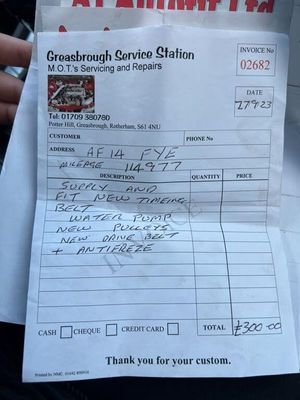 Greasbrough Service Station
M.O.T.'s Servicing and Repairs
INVOICE No
02682
DATE
27923
Tel: 01709 380780
Potter Hill, Greasbrough, Rotherham, S61 4NU
CUSTOMER
PHONE No
ADDRESS
AF14 FYE
MILEAGE 114977
DESCRIPTION QUANTITY PRICE
SUPPLY AND
FIT NEW TIMEING
BELT
WATER PUMP
NEW PULLEYS
NEW DRIVE BELT
+ ANTIFREZE
INVOICE
CASH CHEQUE CREDIT CARD TOTAL £300-00
Thank you for your custom.